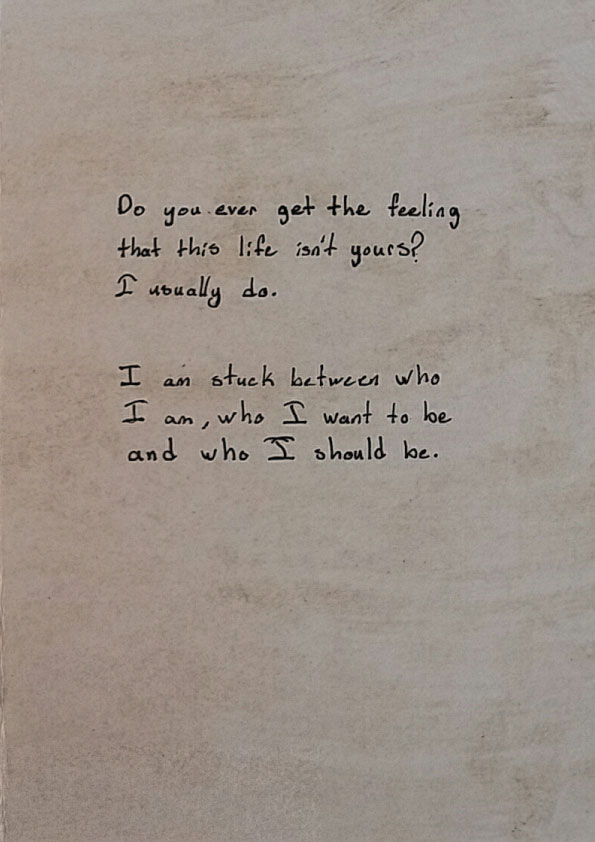 Do you ever get the feeling
that this life isn't yours?
I usually do.
I am stuck between who
I am, who I want to be
and who I should be.